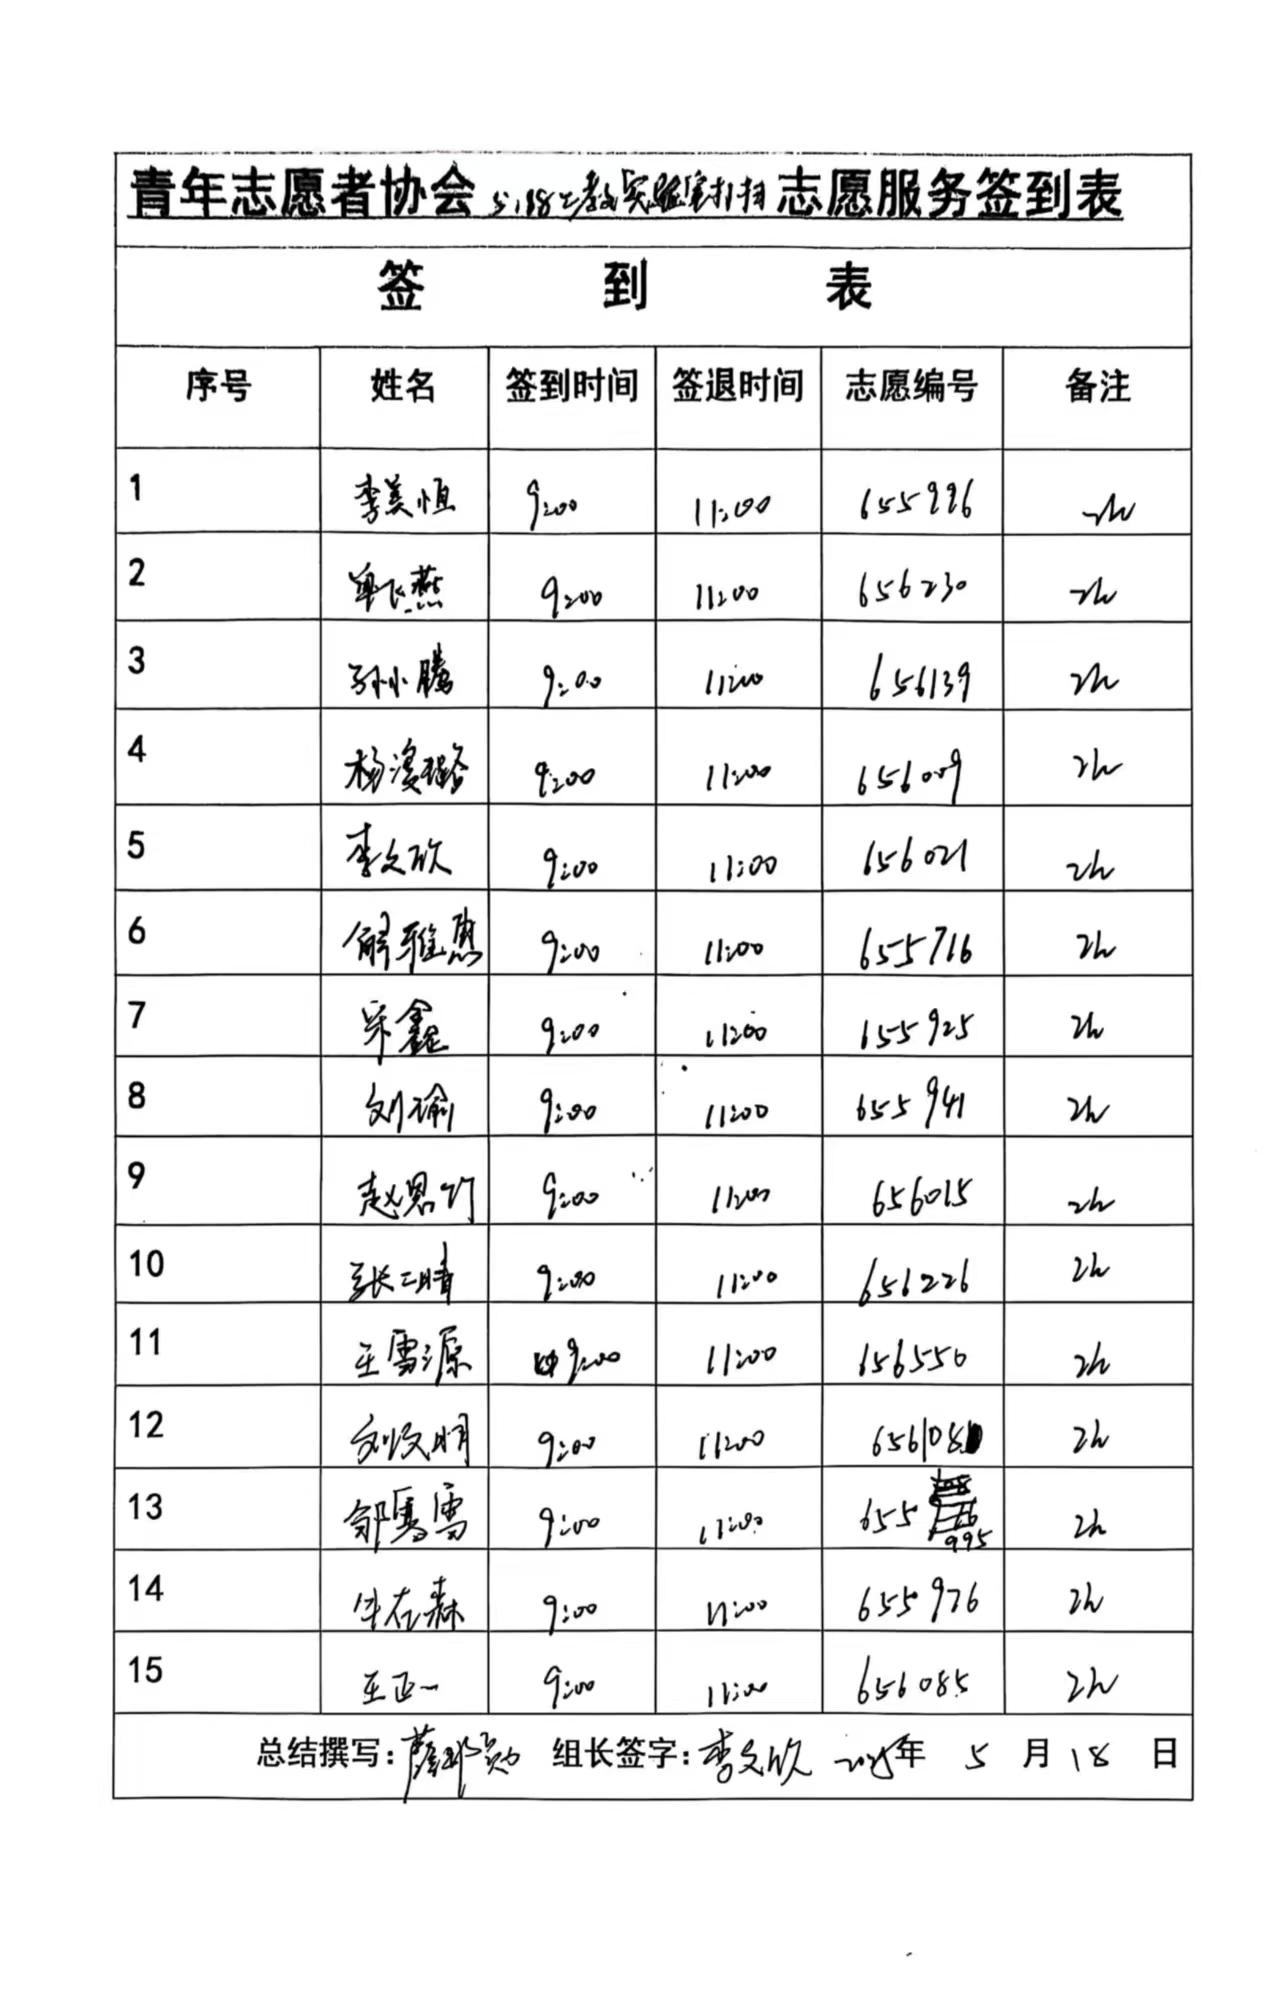 青年志愿者协会5.18工教实验室打扫志愿服务签到表
签 到 表
序号 姓名 签到时间 签退时间 志愿编号 备注
1 李美恒 9:00 11:00 655996 2h
2 单飞燕 9:00 11:00 656230 2h
3 孙小腾 9:00 11:00 656139 2h
4 杨浸璐 9:00 11:00 656009 2h
5 李文欣 9:00 11:00 656021 2h
6 解雅惠 9:00 11:00 655716 2h
7 宋鑫 9:00 11:00 655925 2h
8 刘瑜 9:00 11:00 655941 2h
9 赵思竹 9:00 11:00 656015 2h
10 张二晴 9:00 11:00 656226 2h
11 王雪源 9:00 11:00 656550 2h
12 刘文明 9:00 11:00 656108 2h
13 邹雪 9:00 11:00 655995 2h
14 牛在森 9:00 11:00 655976 2h
15 王正一 9:00 11:00 656085 2h
总结撰写: 组长签字:李文欣 2025年 5 月 18 日